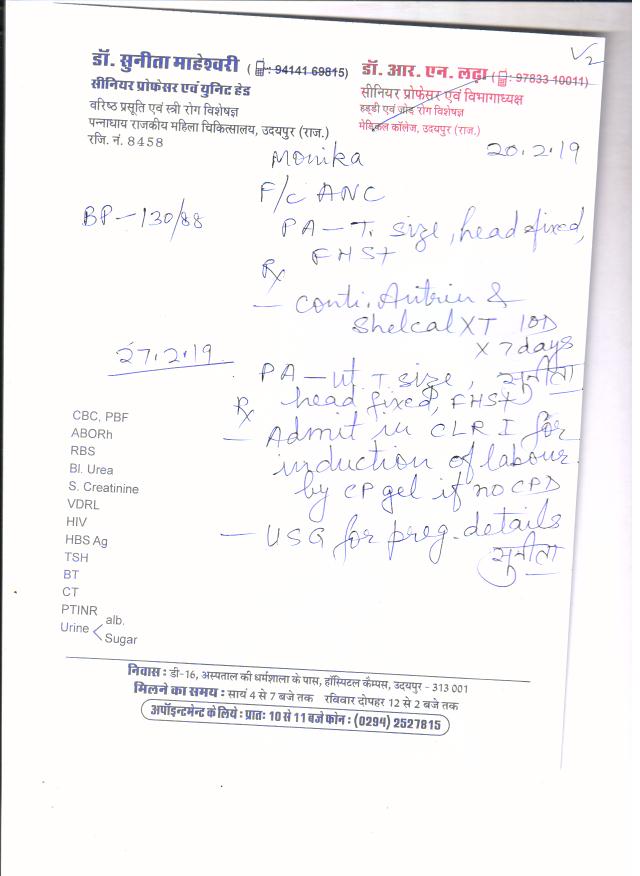 √2
डॉ. सुनीता माहेश्वरी ( : 94141 69815)
सीनियर प्रोफेसर एवं युनिट हेड
वरिष्ठ प्रसूति एवं स्त्री रोग विशेषज्ञ
पन्नाधाय राजकीय महिला चिकित्सालय, उदयपुर (राज.)
रजि. नं. 8458
डॉ. आर. एन. लढ़ा ( : 97833 10011)
सीनियर प्रोफेसर एवं विभागाध्यक्ष
हड्डी एवं जोड़ रोग विशेषज्ञ
मेडिकल कॉलेज, उदयपुर (राज.)
Monika 20.2.19
F/c ANC
BP - 130/88
PA - T. size, head fixed,
FHS+
Rx
- Conti. Autrin &
Shelcal XT 1OD
x 7 days
सुनीता
27.2.19
PA - ut. T. size,
head fixed, FHS+
Rx
- Admit in CLR I for
induction of labour
by CP gel if no CPD
- USG for preg. details
सुनीता
CBC, PBF
ABORh
RBS
Bl. Urea
S. Creatinine
VDRL
HIV
HBS Ag
TSH
BT
CT
PTINR
Urine < alb.
Sugar
निवास : डी-16, अस्पताल की धर्मशाला के पास, हॉस्पिटल कैम्पस, उदयपुर - 313 001
मिलने का समय : सायं 4 से 7 बजे तक रविवार दोपहर 12 से 2 बजे तक
अपॉइन्टमेन्ट के लिये : प्रातः 10 से 11 बजे फोन : (0294) 2527815